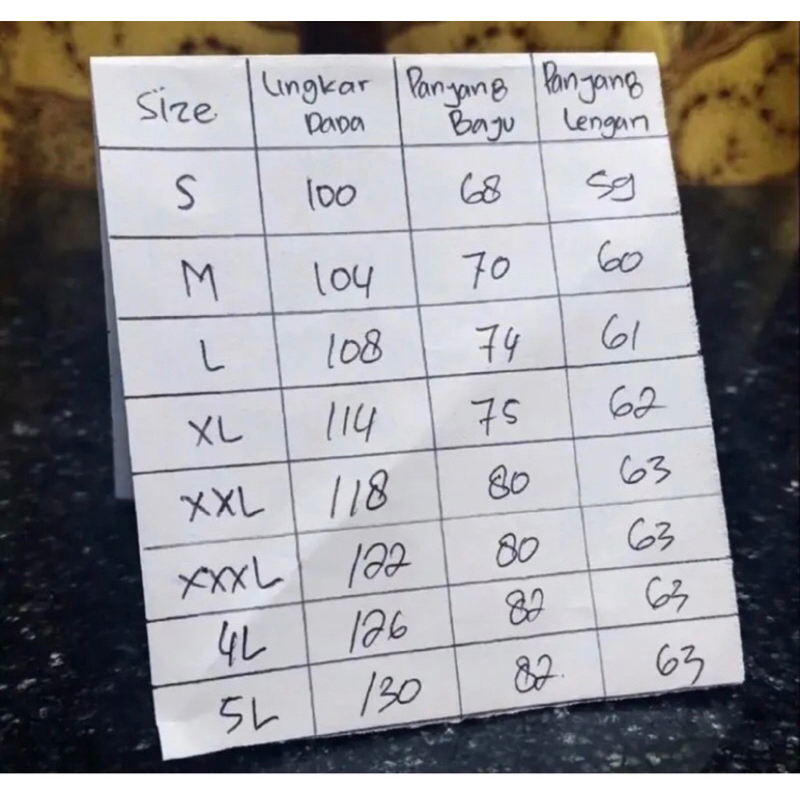 Size Lingkar Dada Panjang Baju Panjang Lengan
S 100 68 59
M 104 70 60
L 108 74 61
XL 114 75 62
XXL 118 80 63
XXXL 122 80 63
4L 126 82 63
5L 130 82 63